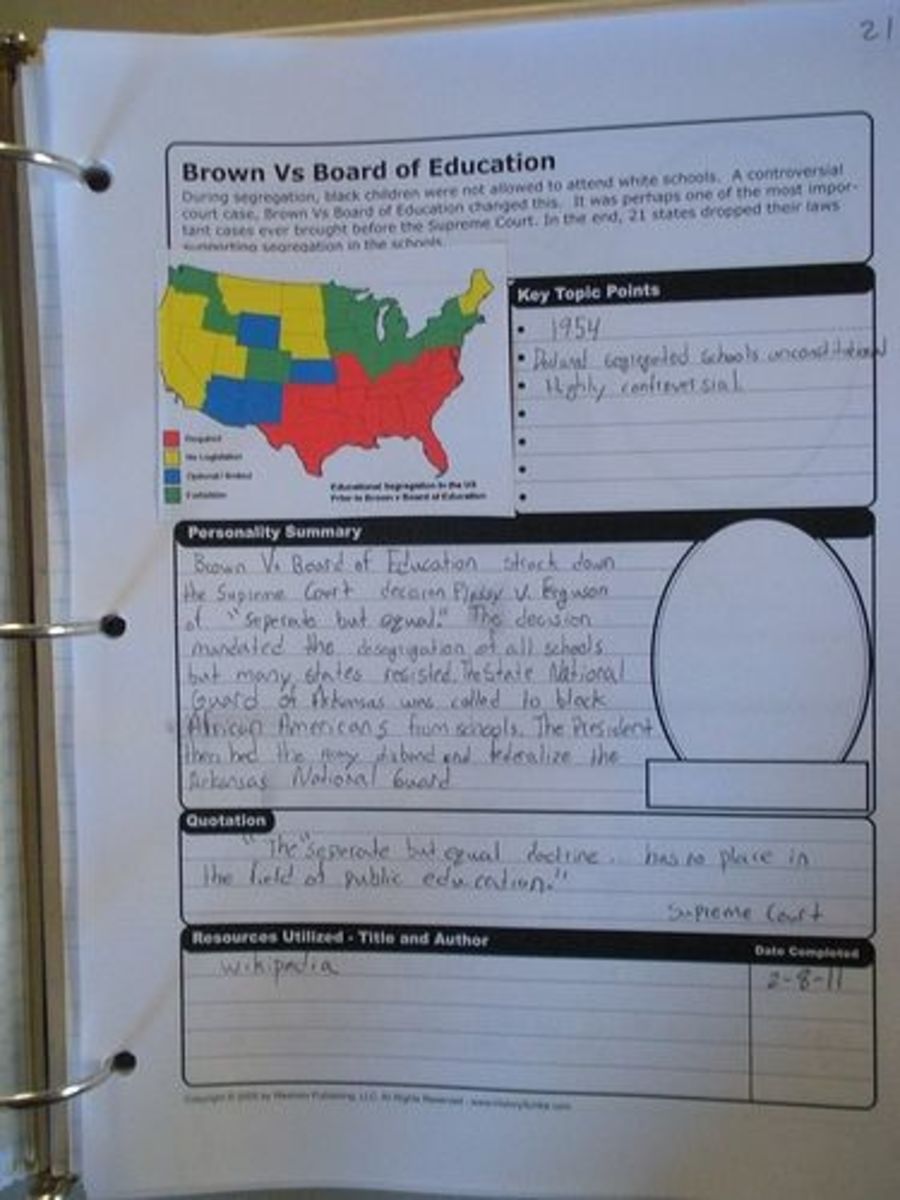 21
Brown Vs Board of Education
During segregation, black children were not allowed to attend white schools. A controversial
court case, Brown Vs Board of Education changed this. It was perhaps one of the most impor-
tant cases ever brought before the Supreme Court. In the end, 21 states dropped their laws
supporting segregation in the schools.
Required
No Legislation
Optional / limited
Forbidden
Educational Segregation in the US
Prior to Brown v Board of Education
Key Topic Points
1954
segregated schools unconstitutional
Highly controversial
Personality Summary
Brown V. Board of Education struck down
the Supreme Court decision Plessy V. Ferguson
of "seperate but equal." The decision
mandated the desegregation of all schools
but many states resisted. The State National
Guard of Arkansas was called to block
African Americans from schools. The President
then had the army disband and federalize the
Arkansas National Guard
Quotation
"The "seperate but equal doctrine. has no place in
the field of public education."
Supreme Court
Resources Utilized - Title and Author
Date Completed
wikipedia
2-8-11
All Rights Reserved